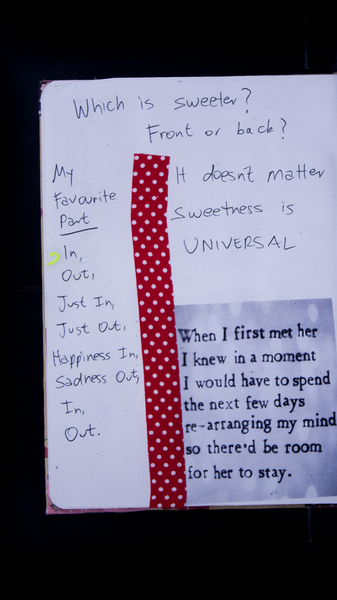 Which is sweeter?
Front or back?
My
Favourite
Part
In,
Out,
Just In,
Just Out,
Happiness In,
Sadness Out,
In,
Out.
It doesn't matter
Sweetness is
UNIVERSAL
When I first met her
I knew in a moment
I would have to spend
the next few days
re-arranging my mind
so there'd be room
for her to stay.